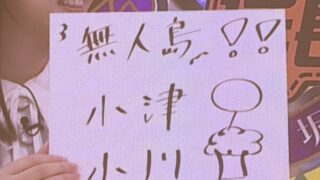 3 無人島、!!
小津
小川
坂